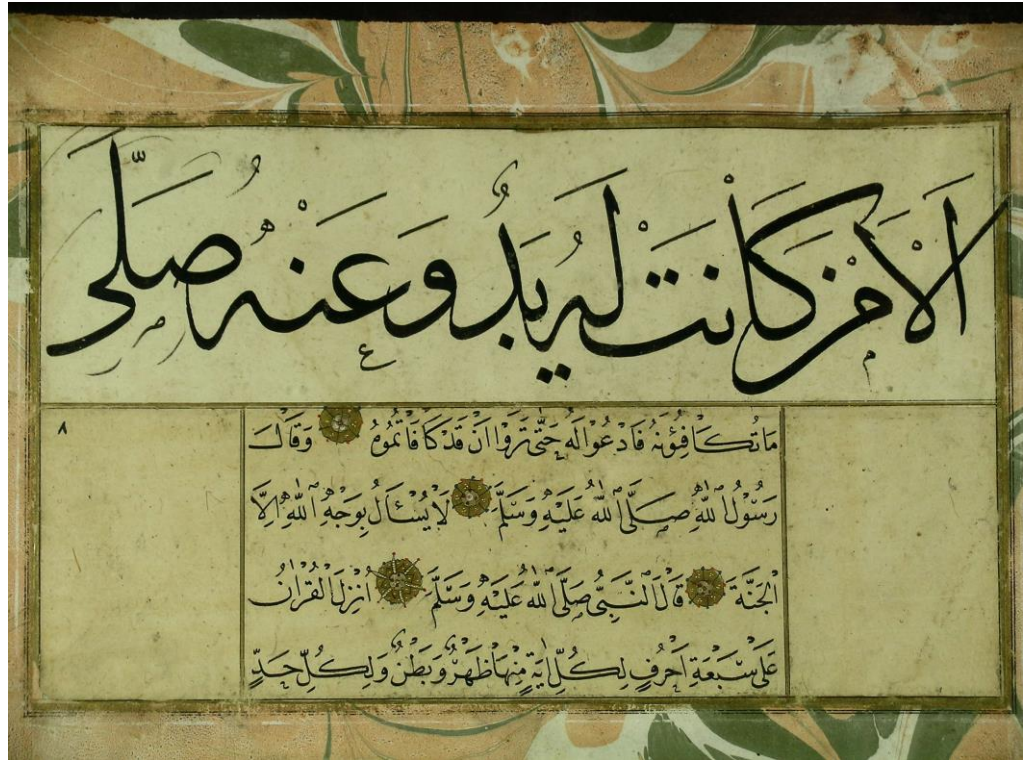 اَلْاَمَنْ كَانَتْ لَهُ يَدٌ وَعَنْهُ صَلَّى
مَا تُكَافِؤُنَهُ فَادْعُوا لَهُ حَتَّى تَرَوْا اَنْ قَدْ كَافَاتُمُوهُ وَقَالَ
رَسُوْلُ اللّٰهِ صَلَّى اللّٰهُ عَلَيْهِ وَسَلَّمَ لَا يُسْـَٔالُ بِوَجْهِ اللّٰهِ اِلَّا
الْجَنَّةَ قَالَ النَّبِىُّ صَلَّى اللّٰهُ عَلَيْهِ وَسَلَّمَ اُنْزِلَ الْقُرْاٰنُ
عَلٰى سَبْعَةِ اَحْرُفٍ لِكُلِّ اٰيَةٍ مِنْهَا ظَهْرٌ وَبَطْنٌ وَلِكُلِّ حَدٍّ
٨